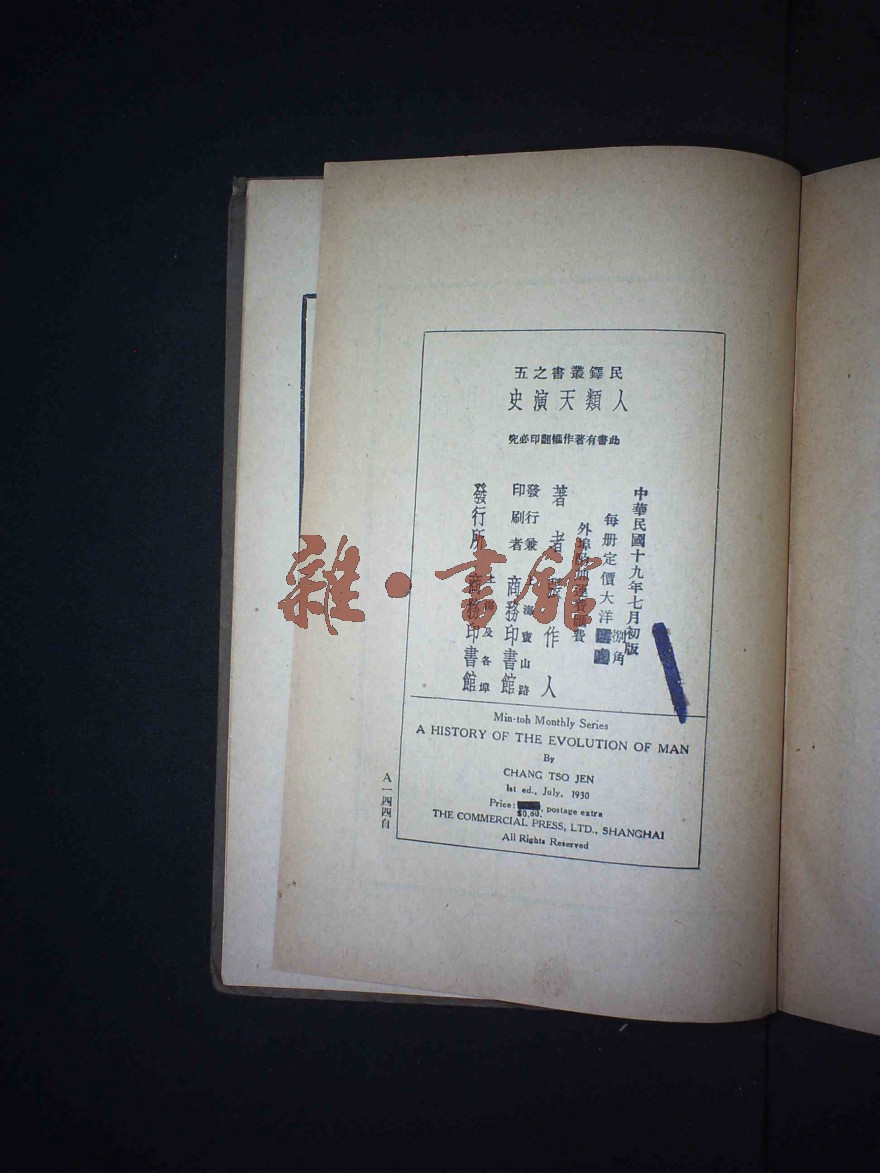 民鐸叢書之五
人類天演史
此書有著作權翻印必究
中華民國十九年七月初版
每册定價大洋捌角
外埠酌加運費匯費
著者張作人
發行兼印刷者
上海寶山路
商務印書館
發行所
上海及各埠
商務印書館
Min-toh Monthly Series
A HISTORY OF THE EVOLUTION OF MAN
By
CHANG TSO JEN
1st ed., July, 1930
Price: $0.80. postage extra
THE COMMERCIAL PRESS, LTD., SHANGHAI
All Rights Reserved
A一四四自
雜·書館